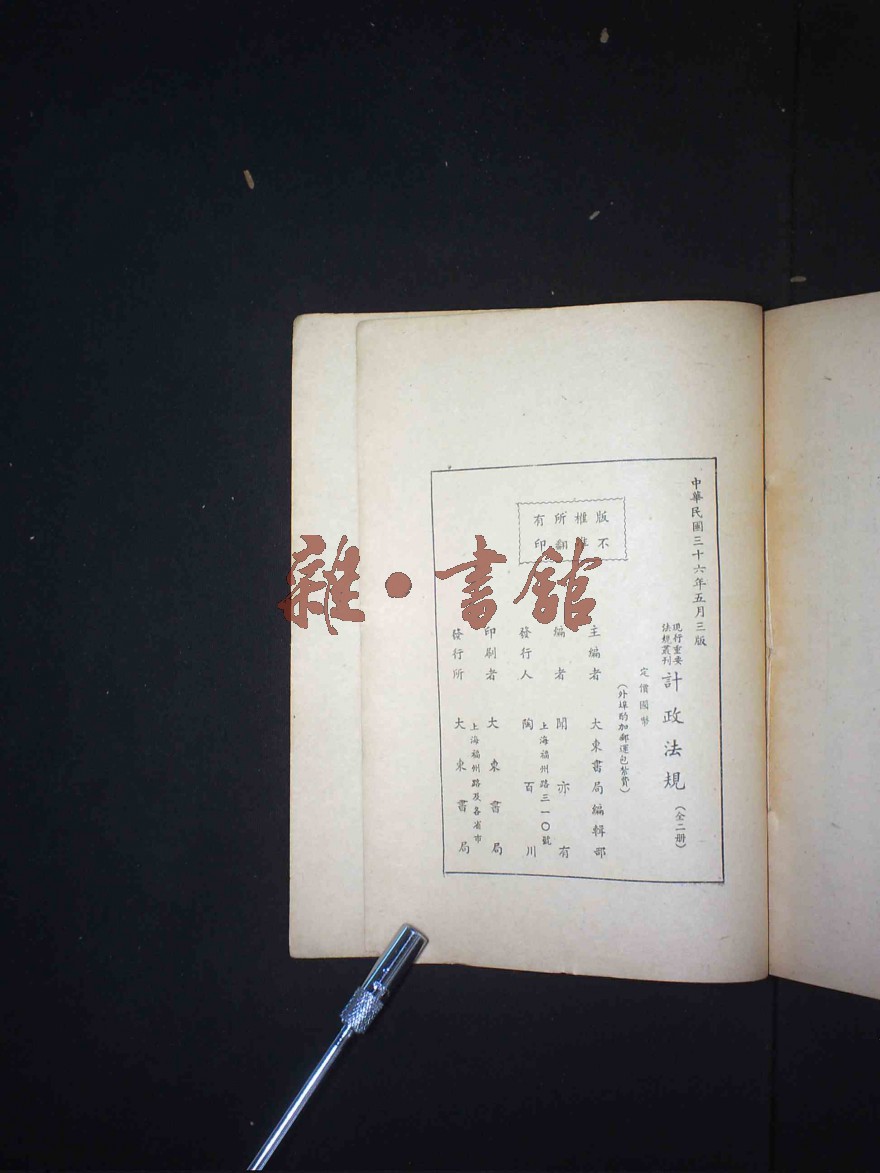 中華民國三十六年五月三版
現行重要
法規叢刊
計政法規
(全二册)
定價國幣
(外埠酌加郵運包紮費)
版權所有
不准翻印
主編者 大東書局編輯部
編者 聞亦有
發行人 陶百川
上海福州路三一〇號
印刷者 大東書局
發行所 大東書局
上海福州路及各省市
雜·書館